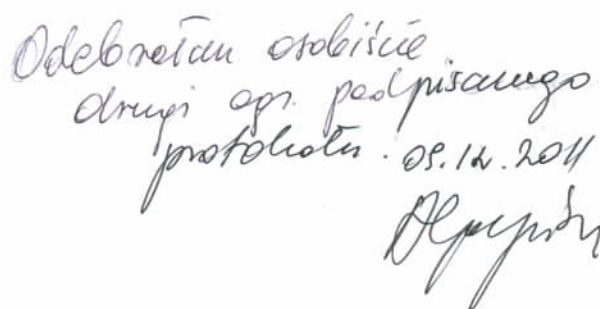 Odebrałam osobiście
drugi egz. podpisanego
protokołu. 09.12.2011